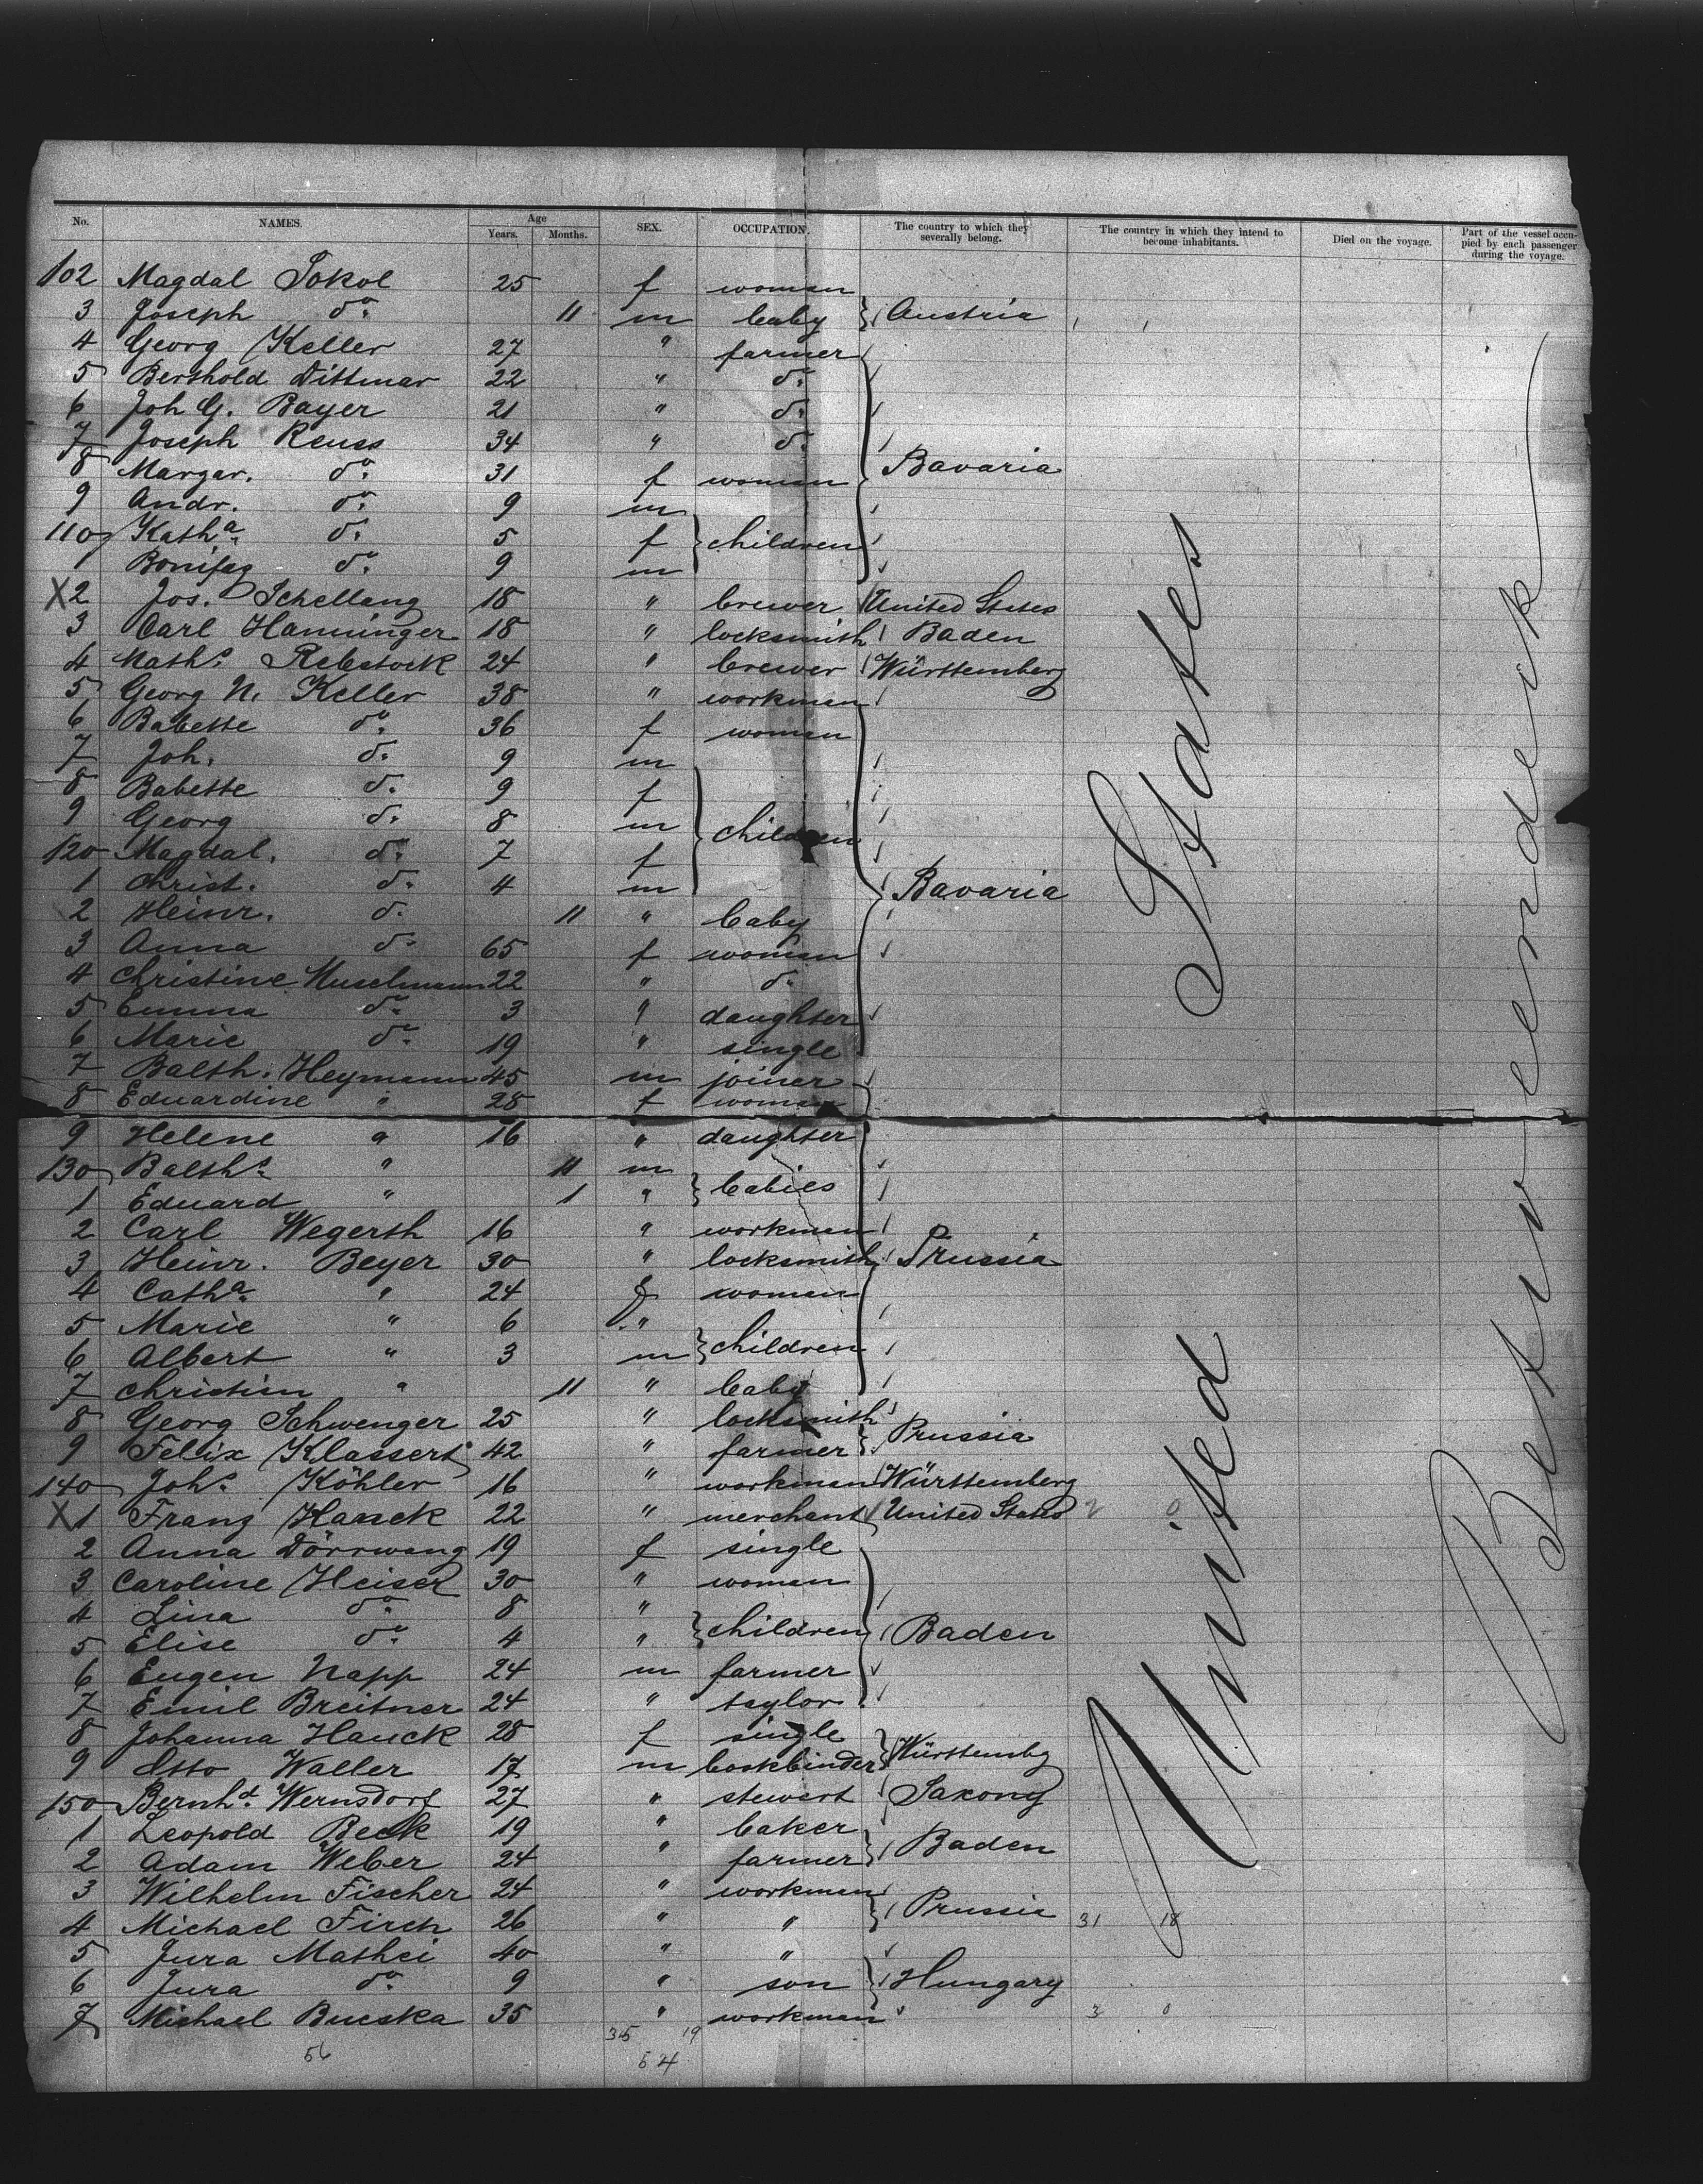 No. NAMES. Age Years. Months. SEX. OCCUPATION. The country to which they severally belong. The country in which they intend to become inhabitants. Died on the voyage. Part of the vessel occupied by each passenger during the voyage.
102 Magdal Sokol 25 f woman
3 Joseph do. 11 m baby } Austria
4 Georg Keller 27 " farmer
5 Berthold Dittmar 22 " do.
6 Joh G. Bayer 21 " do.
7 Joseph Reuss 34 " do.
8 Margar. do. 31 f woman Bavaria
9 Andr. do. 9 m
110 Katha. do. 5 f } children
1 Bonifaz do. 9 m
X2 Jos. Schellang 18 " brewer United States
3 Carl Hanninger 18 " locksmith Baden
4 Maths. Rebstock 24 " brewer Württemberg
5 Georg N. Keller 38 " workman
6 Babette do. 36 f woman
7 Joh. do. 9 m
8 Babette do. 9 f
9 Georg do. 8 m children
120 Magdal. do. 7 f
1 Christ. do. 4 m Bavaria
2 Heinr. do. 11 " baby
3 Anna do. 65 f woman
4 Christine Muselmann 22 " do.
5 Emma do. 3 " daughter
6 Marie do. 19 " single
7 Balth. Heymann 45 m joiner
8 Eduardine " 28 f woman
9 Helene " 16 " daughter
130 Balths. " 11 m
1 Eduard " 1 " } babies
2 Carl Wegerth 16 " workman
3 Heinr. Beyer 30 " locksmith Prussia
4 Catha. " 24 f woman
5 Marie " 6 "
6 Albert " 3 m } children
7 Christian " 11 " baby
8 Georg Schwenger 25 " locksmith
9 Felix Klassert 42 " farmer } Prussia
140 Johs. Köhler 16 " workman Württemberg
X1 Franz Hauck 22 " merchant United States 2 0
2 Anna Dörrwang 19 f single
3 Caroline Heiser 30 " woman
4 Lina do. 8 "
5 Elise do. 4 " } children Baden
6 Eugen Napp 24 m farmer
7 Emil Breitner 24 " taylor
8 Johanna Hauck 28 f single
9 Otto Waller 17 m bookbinder } Württembg
150 Bernhd. Wernsdorf 27 " stewart Saxony
1 Leopold Beck 19 " baker
2 Adam Weber 24 " farmer } Baden
3 Wilhelm Fischer 24 " workman
4 Michael Firch 26 " " } Prussia 31 18
5 Jura Mathei 40 " "
6 Jura do. 9 " son } Hungary
7 Michael Bucska 35 " workman 3 0
35 19
56 54
United States